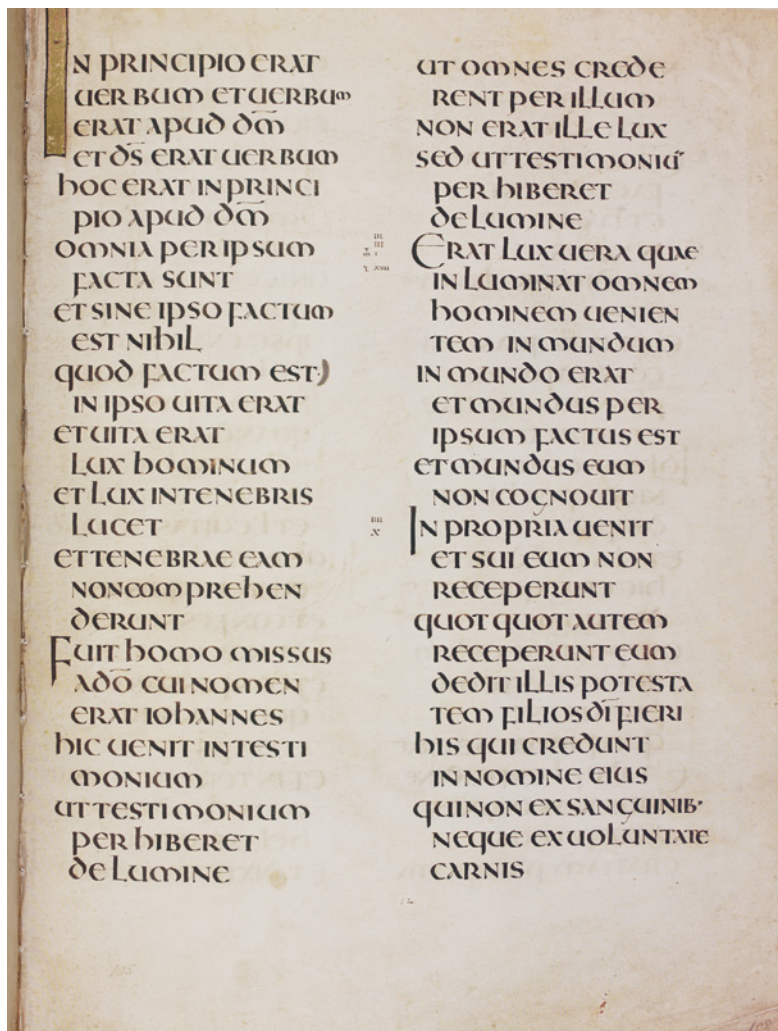 IN PRINCIPIO ERAT
UERBUM ET UERBUM
ERAT APUD DM̅
ET DS̅ ERAT UERBUM
HOC ERAT IN PRINCI
PIO APUD DM̅
OMNIA PER IPSUM
FACTA SUNT
ET SINE IPSO FACTUM
EST NIHIL
QUOD FACTUM EST·)
IN IPSO UITA ERAT
ET UITA ERAT
LUX HOMINUM
ET LUX IN TENEBRIS
LUCET
ET TENEBRAE EAM
NON COMPREHEN
DERUNT
FUIT HOMO MISSUS
A DO̅ CUI NOMEN
ERAT IOHANNES
HIC UENIT IN TESTI
MONIUM
UT TESTIMONIUM
PERHIBERET
DE LUMINE
UT OMNES CREDE
RENT PER ILLUM
NON ERAT ILLE LUX
SED UT TESTIMONIU̅
PERHIBERET
DE LUMINE
III
III
ERAT LUX UERA QUAE
INLUMINAT OMNEM
HOMINEM UENIEN
TEM IN MUNDUM
IN MUNDO ERAT
ET MUNDUS PER
IPSUM FACTUS EST
ET MUNDUS EUM
NON COGNOUIT
IIII
X
IN PROPRIA UENIT
ET SUI EUM NON
RECEPERUNT
QUOTQUOT AUTEM
RECEPERUNT EUM
DEDIT ILLIS POTESTA
TEM FILIOS DI̅ FIERI
HIS QUI CREDUNT
IN NOMINE EIUS
QUI NON EX SANGUINIB·
NEQUE EX UOLUNTATE
CARNIS
105